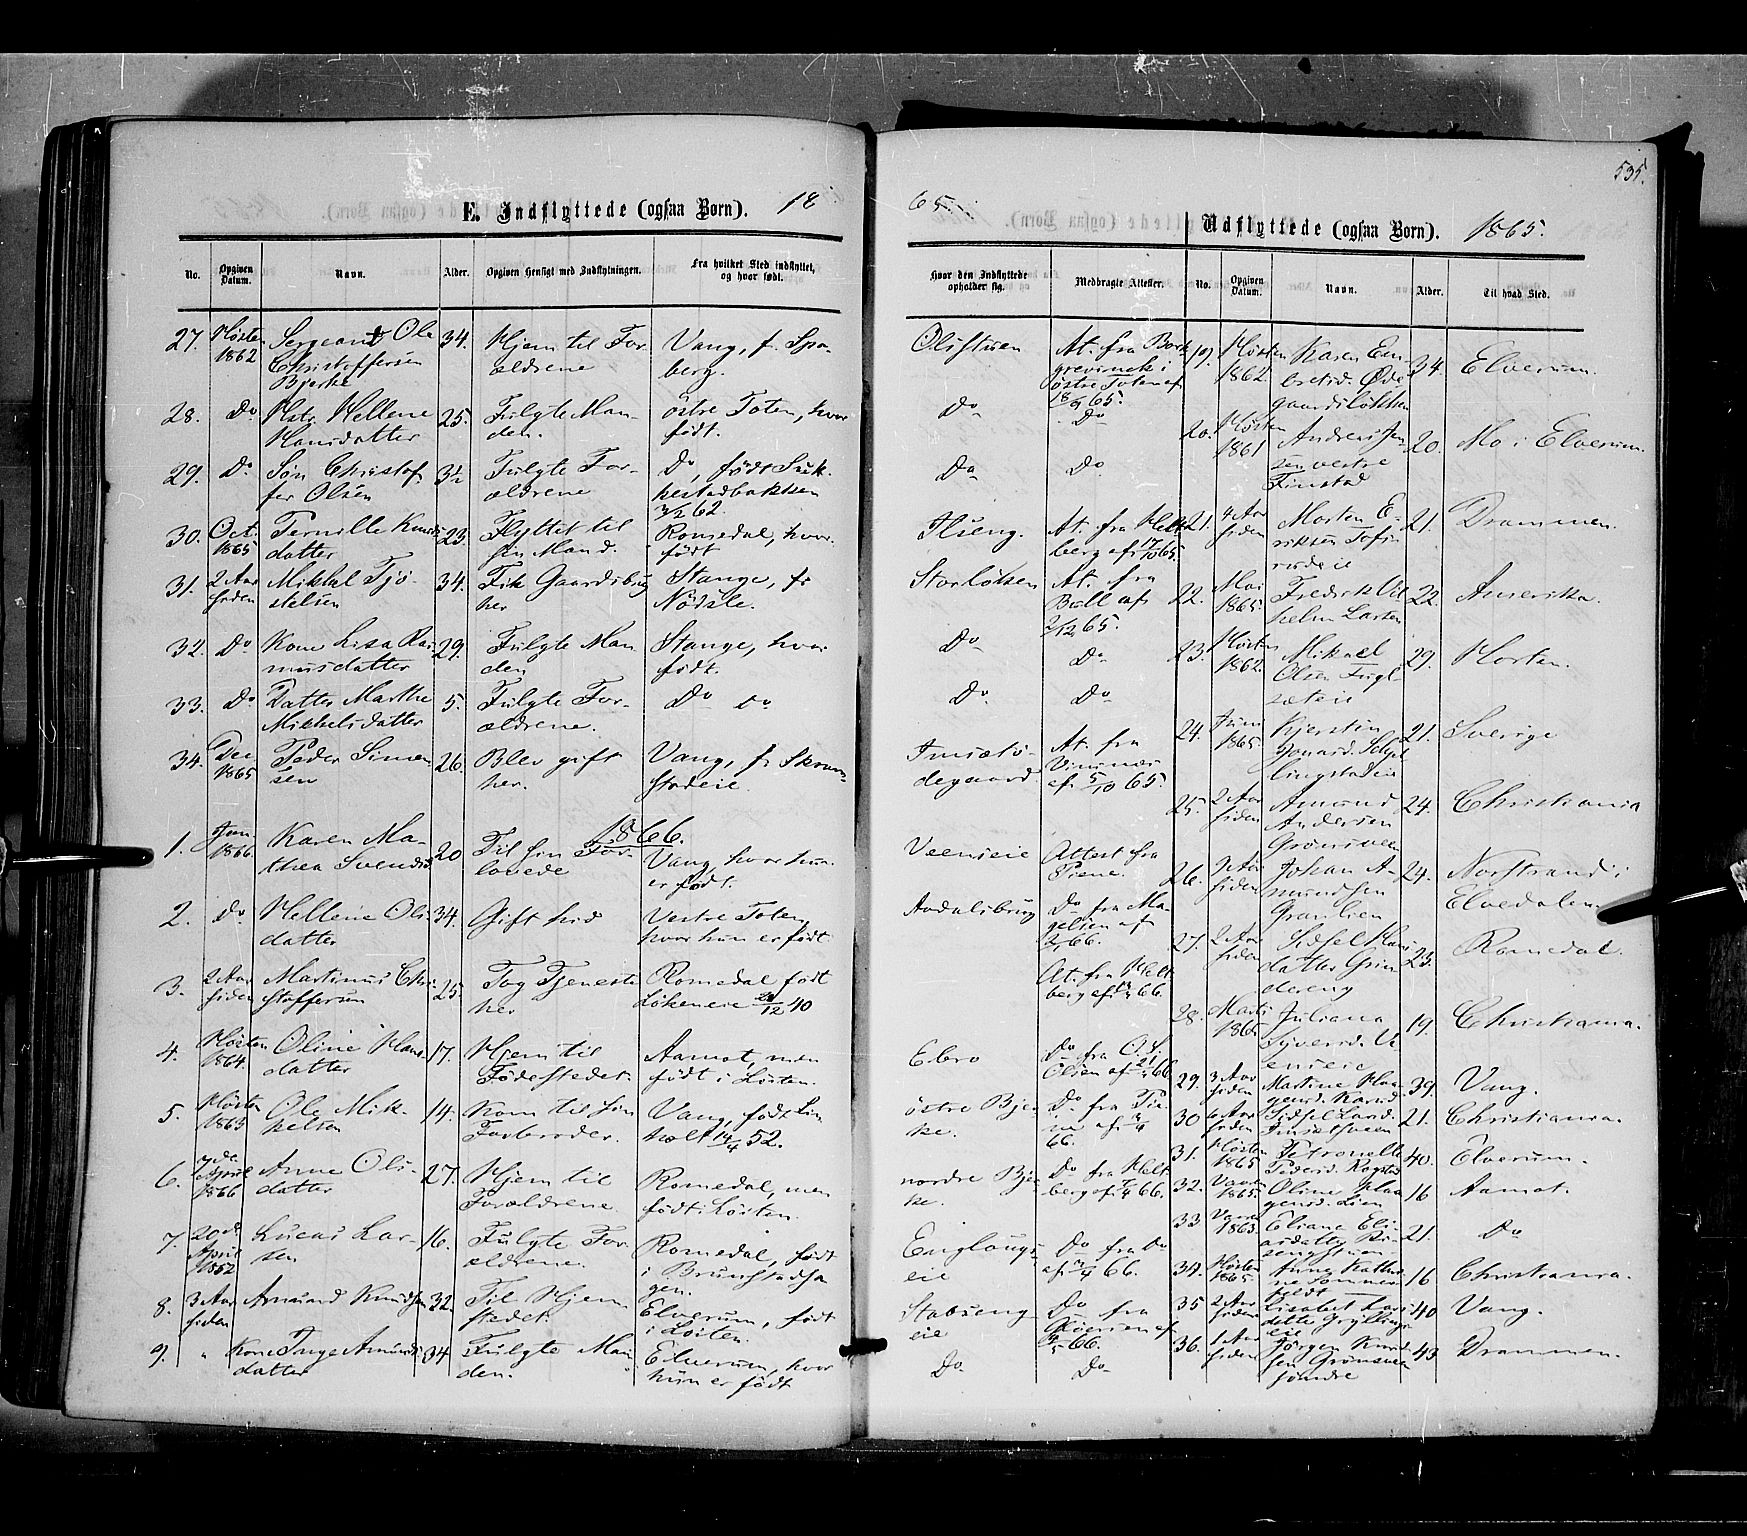 535.
E. Indflyttede (ogsaa Børn). 18
65.
Udflyttede (ogsaa Børn). 1865.
No.
Opgiven Datum.
Navn.
Alder.
Opgiven Hensigt med Indflytningen.
Fra hvilket Sted indflyttet, og hvor født.
Hvor den Indflyttede opholder sig.
Medbragte Attester.
27. Høsten 1862 Sergeant Ole Christoffersen Bjerke 34. Hjem til Forældrene Vang, f. Spaberg. Olistuen At. fra østre Toten af 18/9 65.
28. Do Hstr. Hellene Hansdatter 25. Fulgte Manden. østre Toten, hvor født. Do Do
29. Do Søn Christoffer Olsen 3½ Fulgte Forældrene Do, født 62 Do Do
30. Oct. 1865 Pernille Knudsdatter 23. Flyttet til sin Mand. Romedal, hvor født Ilseng. At. fra Heltberg af 17/10 65.
31. 2 Aar siden Mikkel Tjøstelsen 34. Fik Gaardsbrug her Stange, f. Nødsle. Storløkken At. fra Bull af 2/12 65.
32. Do Kone Lisa Rasmusdatter 29. Fulgte Manden Stange, hvor født. Do Do
33. Do Datter Marthe Mikkelsdatter 5. Fulgte Forældrene. Do Do Do Do
34. Dec 1865 Peder Simensen 26. Blev gift her. Vang, f. Skramstadeie. Imsætødegaard At. fra Vinsnæs af 5/10 65.
1866.
1. Jan. 1866 Karen Mathea Svendsd. 20 Til sin Forlovede Vang, hvor hun er født. Veeneie Attest fra Piene.
2. Do Hellene Olsdatter 34. Gift hid Vestre Toten, hvor hun er født Aadalsbrug Do fra Magelsen af 66.
3. 2 Aar siden Martinus Christoffersen 25. Tog Tjeneste her Romedal født Løkeneie 40 At. fra Heltberg af 66.
4. Høsten 1864. Oline Hansdatter 17. Hjem til Fødestedet. Aamot, men født i Løiten. Ebro Do fra O. S. Olsen af 66
5. Høsten 1865 Ole Mikkelsen 14. Kom til sin Farbroder. Vang, født 19/4 52. østre Bjerke. Do fra Piene af 66.
6. 7de April 1866 Anne Olsdatter 27. Hjem til Forældrene. Romedal, men født i Løiten. nordre Bjerke. Do fra Heltberg af 66.
7. 20de April Lucas Larsen 16. Fulgte Forældrene. Romedal, født i Brunstadhagen. Englaugseie Do fra Do af 66.
8. 3 Aar siden Amund Knudsen 32. Til Hjemstedet. Elverum, født i Løiten. Stabsengeie Do fra af 66.
9. " Kone Inge Amundsdatter 34 Fulgte Manden. Elverum, hvor hun er født Do Do
No.
Opgiven Datum.
Navn.
Alder.
Til hvad Sted.
19. Høsten 1862. Karen Embretsd. Ødegaardsløkken 34. Elverum.
20. Høsten 1861 Andreas Jensen vestre Finstad 20. Mo i Elverum.
21. 4 Aar siden Morten Eriksen 21. Drammen.
22. Mai 1865. Fredrik Vilhelm Larsen 22. Amerika.
23. Høsten 1862. Mikael Olsen Fuglsæteie 29. Horten.
24. Juni 1865. Kjerstin 21. Sverige
25. 2 Aar siden Amund Andersen Grønsveen 24. Christiania
26. 2 Aar siden Johan Amundsen Graulien 24. Norstrand i Elvedalen
27. 2 Aar siden Sidsel Hansdatter Grindereng 23. Romedal.
28. Marts 1865. Juliana Syversd. Veeneie 19. Christiania.
29. 3 Aar siden Martine Haagensd. 39. Vang.
30 6 Aar siden Sidsel Larsd. Imsætsveen 21. Christiania.
31. Høsten 1865 Petronelle Pedersd. Rogstad 40. Elverum.
32. Vaar 1865. Oline Haagensd. Lien 16 Aamot.
33 Vaar 1863. Eliane 21. Do
34. Høsten 1865. Anne Kathrine Sommerfeldt 16 Christiania.
35 2 Aar siden Lisabet Larsdatter Gryllingseie 40 Vang.
36. 1 Aar siden Jørgen Knudsen Grønsveen søndre 43 Drammen.